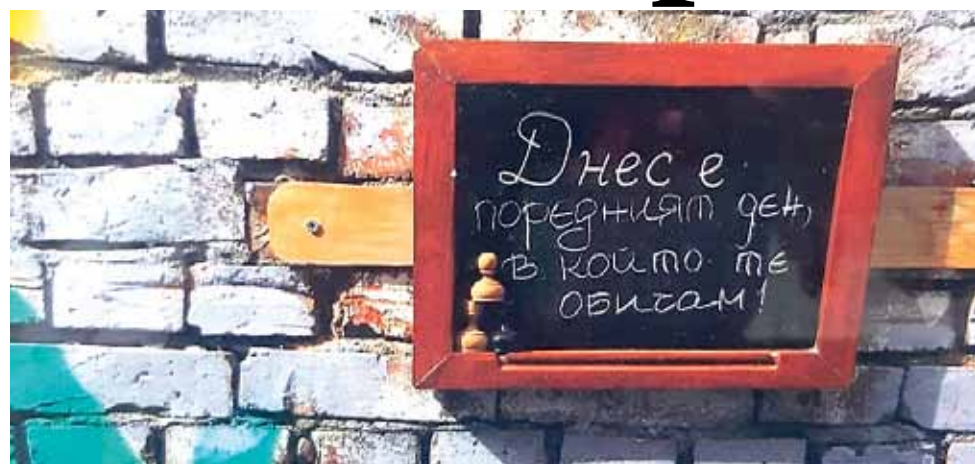 Днес е
поредният ден,
в който те
обичам!